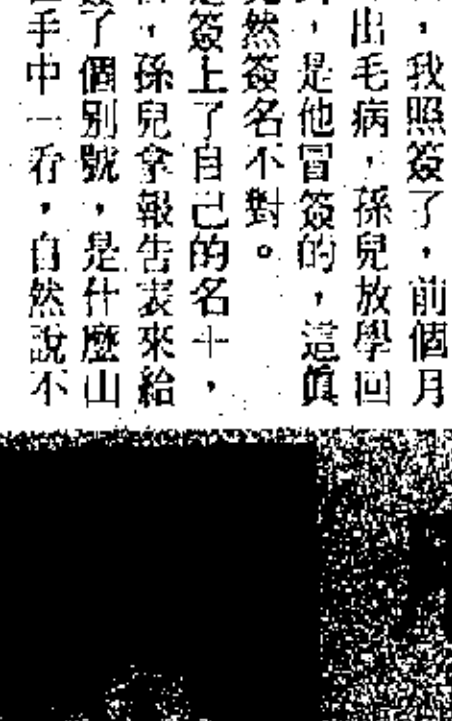 ，我照簽了，前個月
出毛病，孫兒放學回
，是他冒簽的，這眞
然簽名不對。
簽上了自己的名十，
，孫兒拿報告表來給
了個別號，是什麼山
手中一看，自然說不